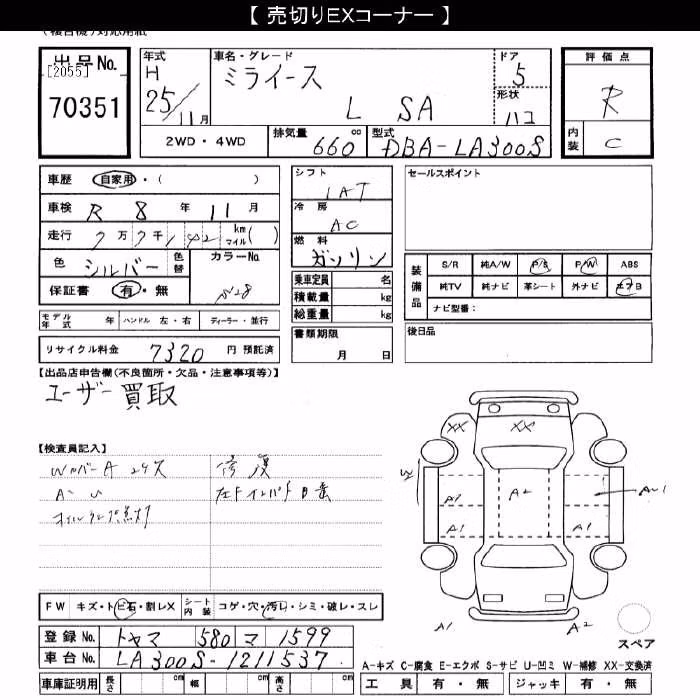 【 売切りEXコーナー 】
出品No.
[2055]
70351
年式
H
25/11月
車名・グレード
ミライース
L SA
ドア
5
形状
ハコ
評価点
R
内装
C
2WD・4WD
排気量
660
cc
型式
DBA-LA300S
車歴
自家用・( )
車検
R 8 年 11 月
走行
7万7千142
km
マイル( )
色
シルバー
色替
カラーNo.
S28
保証書
有・無
シフト
IAT
冷房
AC
燃料
ガソリン
乗車定員
名
積載量
kg
総重量
kg
セールスポイント
装備品
S/R
純A/W
P/S
P/W
ABS
純TV
純ナビ
革シート
外ナビ
エアB
ナビ型番:
モデル年式
年
ハンドル
左・右
ディーラー・並行
リサイクル料金
7320
円 預託済
書類期限
月 日
後日品
【出品店申告欄(不良箇所・欠品・注意事項等)】
ユーザー買取
【検査員記入】
修復
FW
キズ・トビ石・割レX
シート内装
コゲ・穴・汚レ・シミ・破レ・スレ
登録No.
トヤマ 580 マ 1599
車台No.
LA300S-1211537
車庫証明用
長さ
cm
幅
cm
高さ
cm
XX
XX
W
A1
A2
A1
A1
A1
A2
スペア
A-キズ C-腐食 E-エクボ S-サビ U-凹ミ W-補修 XX-交換済
工具
有・無
ジャッキ
有・無